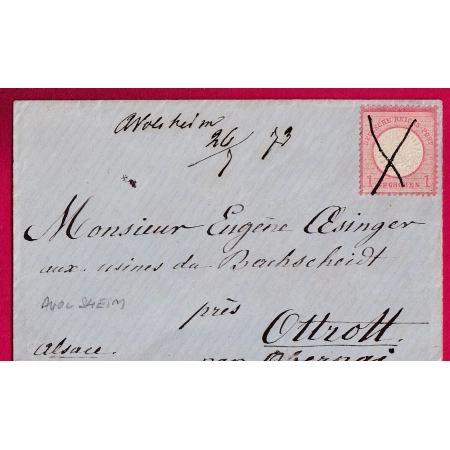 Avolsheim
26/7 73
DEUTSCHE REICHS-POST
1 GROSCHEN 1
Monsieur Eugène Œsinger
aux usines du Bachscheidt
AVOLSHEIM
près
Ottrott
Alsace.
par Obernai